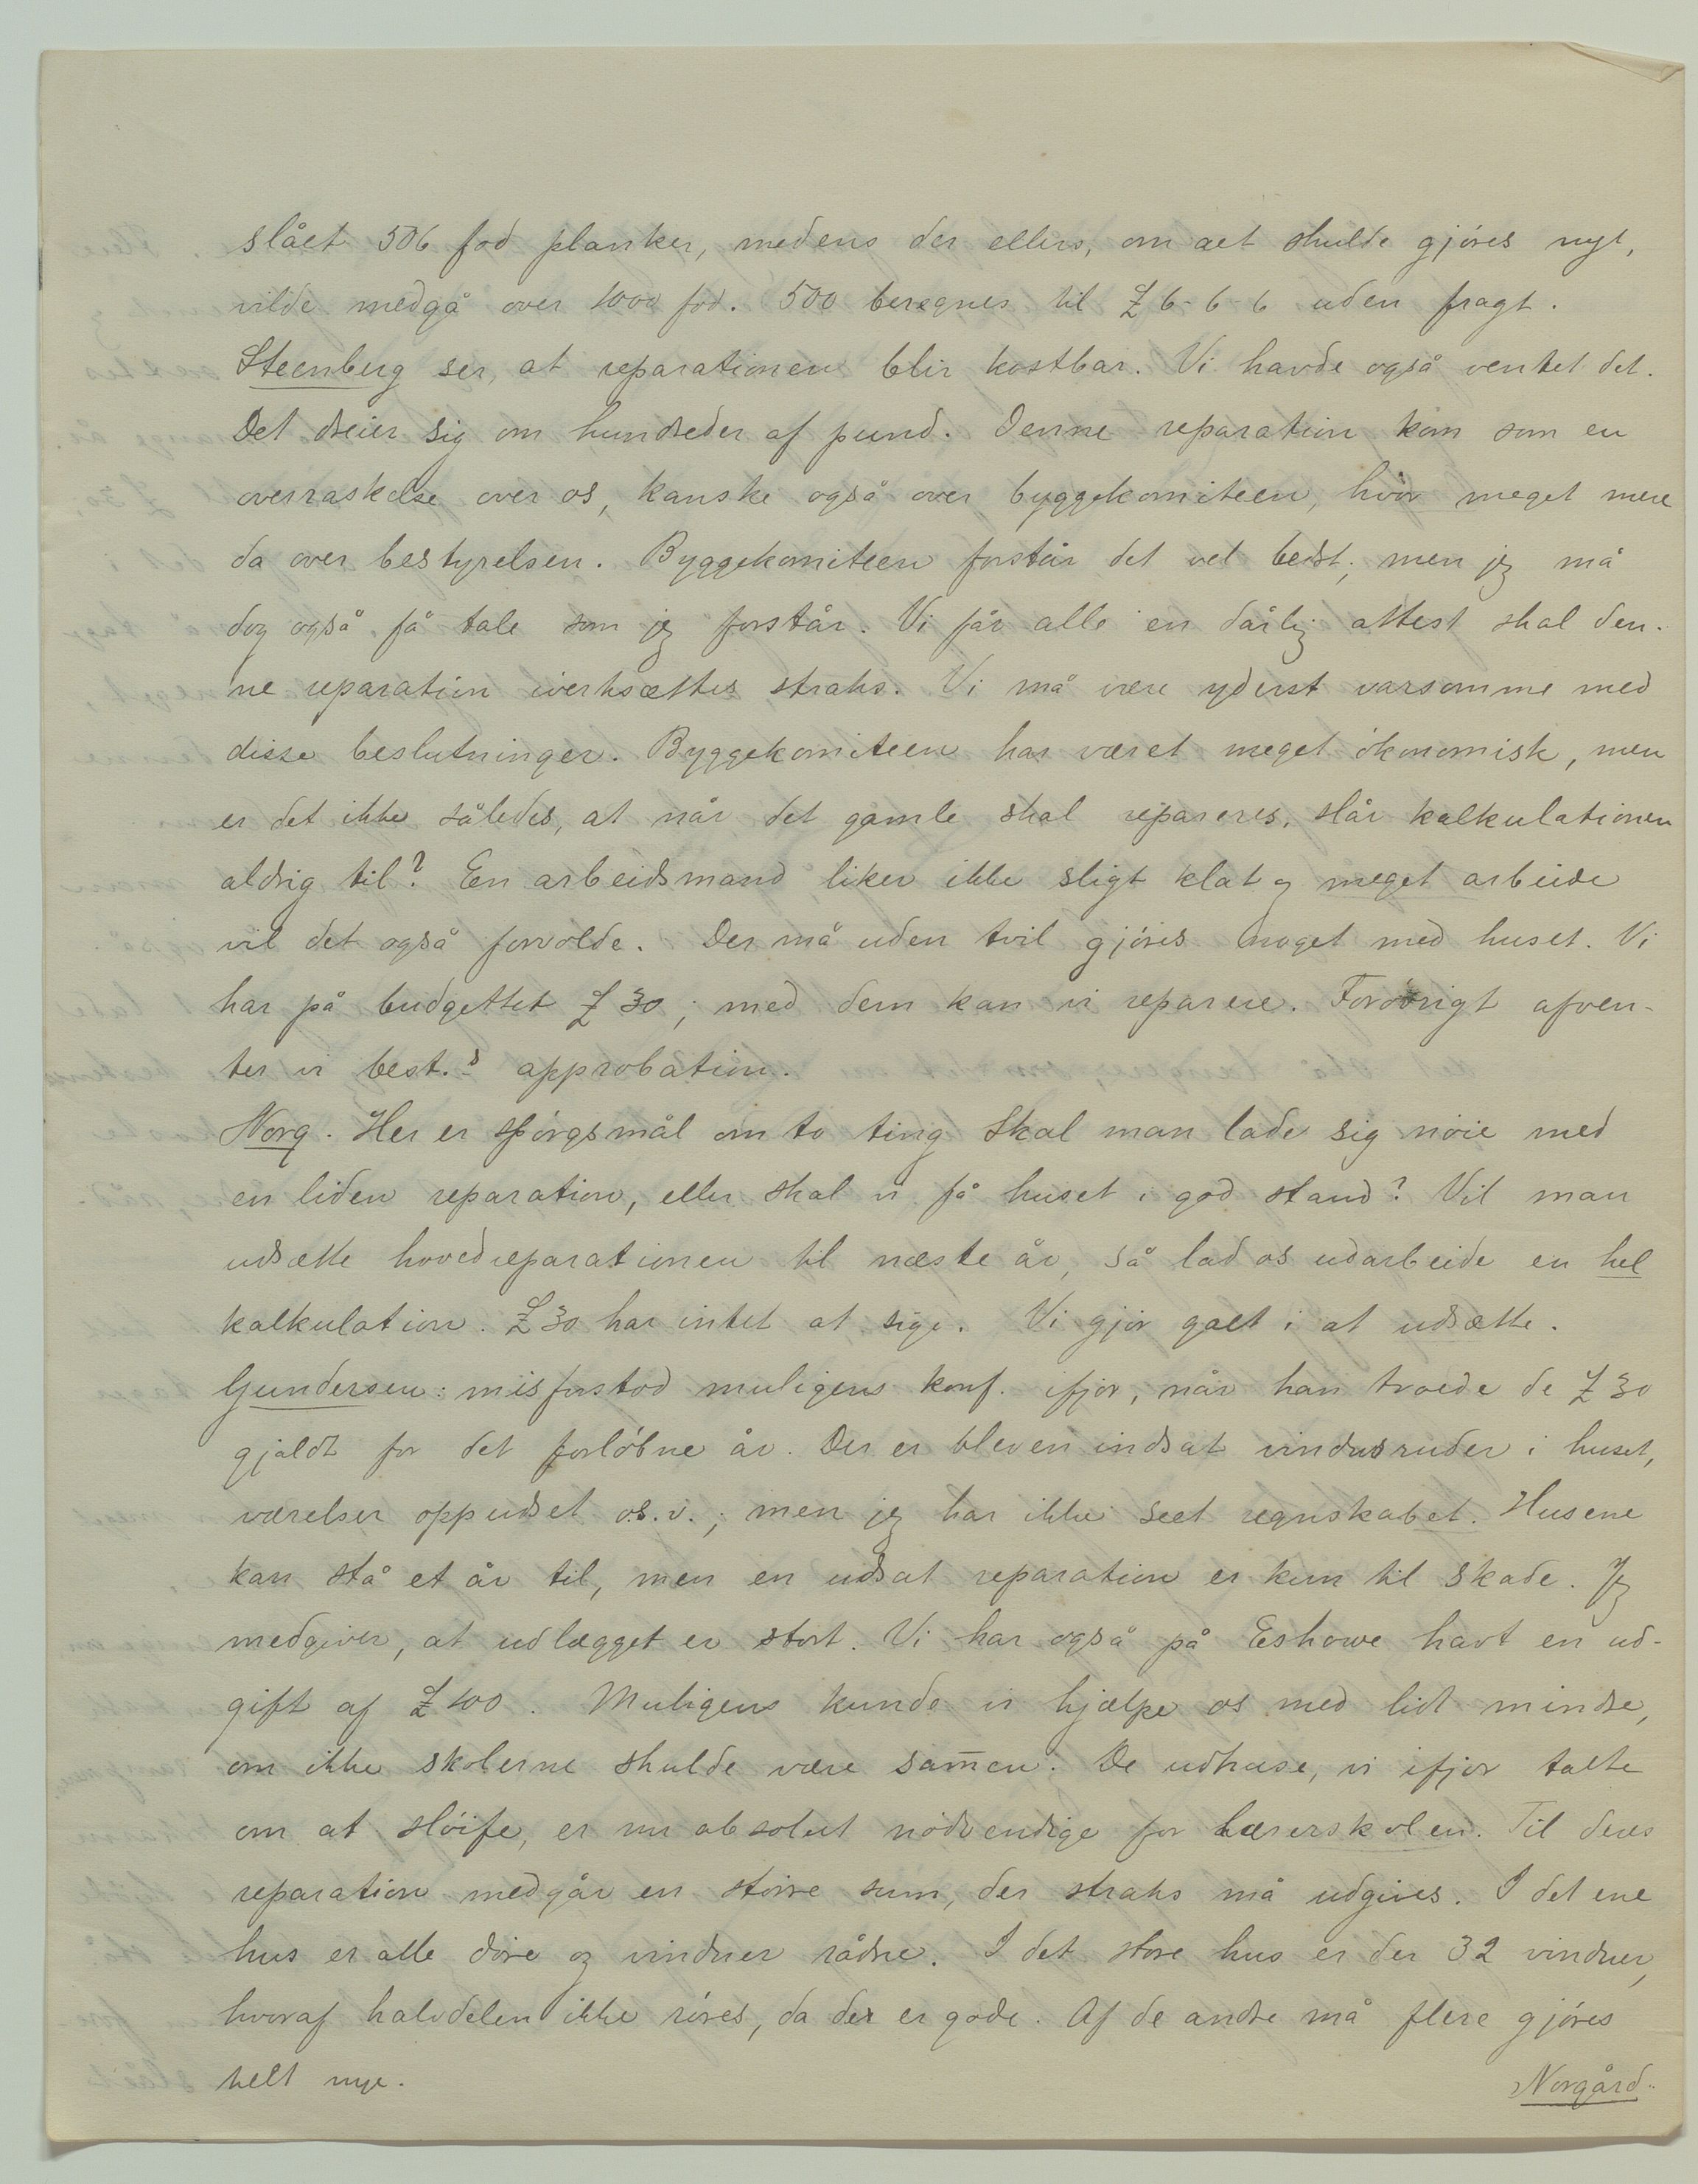 slået 506 fod planker, medens der ellers, om det skulde gjöres nyt,
vilde medgå over 1000 fod. 500 beregnes til £ 6-6-6 uden fragt.
Steenberg ser, at reparationen blir kostbar. Vi havde også ventet det.
Det dreier sig om hundreder af pund. Denne reparation kom som en
overraskelse over os, kanske også over byggekomiteen, hvor meget mere
da over bestyrelsen. Byggekomiteen forstår det vel bedst; men jeg må
dog også få tale som jeg forstår. Vi får alle en dårlig attest skal den-
ne reparation iverksættes straks. Vi må være yderst varsomme med
disse beslutninger. Byggekomiteen har været meget ökonomisk, men
er det ikke således, at når det gamle skal repareres, slår kalkulationen
aldrig til? En arbeidsmand liker ikke sligt klat og meget arbeide
vil det også forvolde. Der må uden tvil gjöres noget med huset. Vi
har på budgettet £ 30; med dem kan vi reparere. Forövrigt afven-
ter vi best.s approbation.
Norg. Her er spörgsmål om to ting Skal man lade sig nöie med
en liden reparation, eller skal vi få huset i god stand? Vil man
udsætte hovedreparationen til næste år, så lad os udarbeide en hel
kalkulation. £ 30 har intet at sige. Vi gjör galt i at udsætte.
Gundersen: misforstod muligens konf. ifjor, når han troede de £ 30
gjaldt for det forlöbne år. Der er bleven indsat vindusruder i huset,
værelser oppudset o.s.v.; men jeg har ikke seet regnskabet. Husene
kan stå et år til, men en udsat reparation er kun til skade. Jeg
medgiver, at udlægget er stort. Vi har også på Eshowe havt en ud-
gift af £ 100. Muligens kunde vi hjælpe os med lidt mindre,
om ikke skolerne skulde være sam̅en. De udhuse, vi ifjor talte
om at slöife, er nu absolut nödvendige for lærerskolen. Til deres
reparation medgår en större sum, der straks må udgives. I det ene
hus er alle döre og vinduer rådne. I det store hus er der 32 vinduer,
hvoraf halvdelen ikke röres, da der er gode. Af de andre må flere gjöres
helt nye.
Norgård